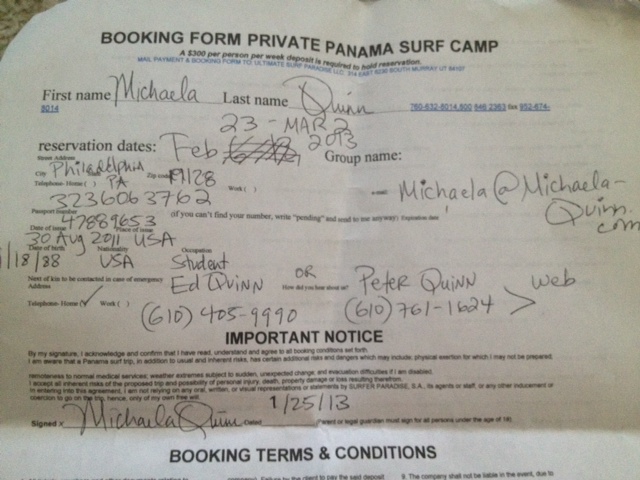 BOOKING FORM PRIVATE PANAMA SURF CAMP
A $300 per person per week deposit is required to hold reservation.
MAIL PAYMENT & BOOKING FORM TO: ULTIMATE SURF PARADISE LLC. 314 EAST 6230 SOUTH MURRAY UT 84107
First name Michaela Last name Quinn 760-632-8014,800 646 2363 fax 952-674-
8014
23 - MAR 2
reservation dates: Feb 2013 Group name:
Street Address
City Philadelphia State PA Zip code 19128
Telephone- Home ( ) Work ( ) e-mail: Michaela@Michaela-
Quinn.com
3236063762
Passport number 47889653 (if you can't find your number, write "pending" and send to me anyway) Expiration date
Date of issue Place of issue
30 Aug 2011 USA
Date of birth Nationality Occupation
/18/88 USA Student
Next of kin to be contacted in case of emergency Ed Quinn OR How did you hear about us? Peter Quinn > Web
Address
Telephone- Home ( ✓ Work ( ) (610) 405-9990 (610) 761-1624
IMPORTANT NOTICE
By my signature, I acknowledge and confirm that I have read, understand and agree to all booking conditions set forth.
I am aware that a Panama surf trip, in addition to usual and inherent risks, has certain additional risks and dangers which may include: physical exertion for which I may not be prepared;
remoteness to normal medical services; weather extremes subject to sudden, unexpected change; and evacuation difficulties if I am disabled.
I accept all inherent risks of the proposed trip and possibility of personal injury, death, property damage or loss resulting therefrom.
In entering into this agreement, I am not relying on any oral, written, or visual representations or statements by SURFER PARADISE, S.A., its agents or staff, or any other inducement or
coercion to go on the trip, hence, only of my own free will.
Signed x Michaela Quinn Dated 1/25/13 (Parent or legal guardian must sign for all persons under the age of 18)
BOOKING TERMS & CONDITIONS
company). Failure by the client to pay the said deposit
9. The company shall not be liable in the event, due to